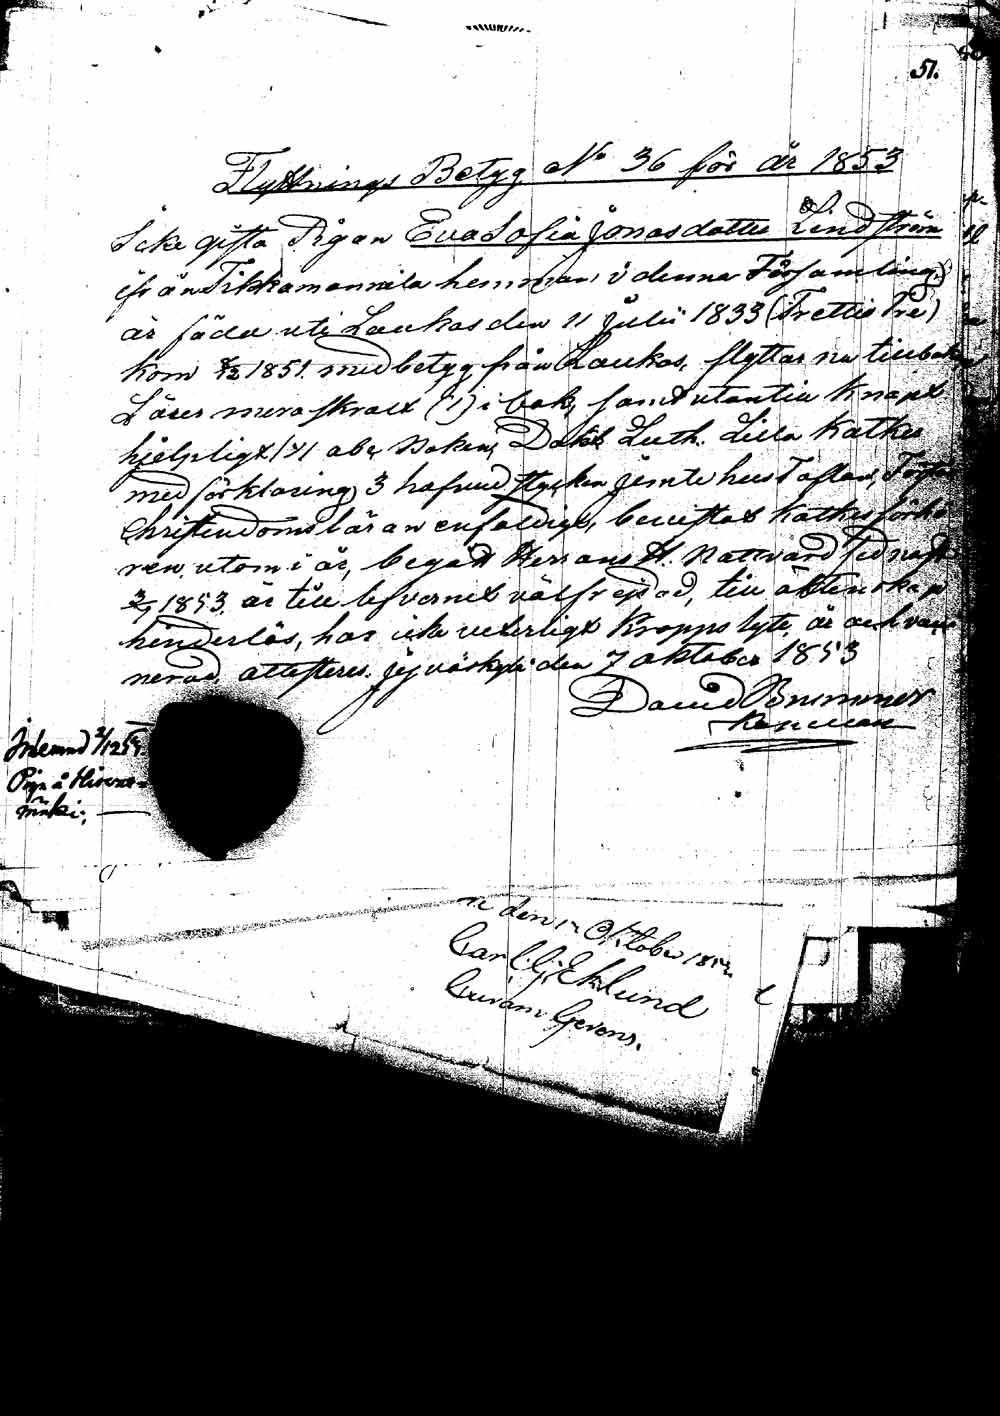 51.
Flyttnings Betyg No 36 för år 1853
Icke gifta Pigan Eva Sofia Jonasdotter Lindström
ifrån Tikkamannila hemman i denna Församling,
är född uti Laukas den 11 Julii 1833 (Trettio Tre)
kom 1851. med betyg från Laukas, flyttar nu tillbaka
Läser mera skralt (1) i bok, samt utantill knapt
hjelpligt abc Boken, Dokt Luth. Lilla Katkes
med förklaring, 3 hufvud stycken jemte hus Taflan,
Christendoms läran enfaldigt, bevistat Katkes förhö
ren, utom i år, begått Herrans H. Nattvard sednast
1853. är till lefvernet välfrejdad, till äktenskap
hinderlös, har icke veterligt Kropps lyte, är ock vacci
nerad, attesteras. Jyväskylä den 7 Oktober 1853
David Brummer
Inlemnad 2/12 53.
Piga å
mäki.
den Oktober 1853.
Carl G. Ekelund